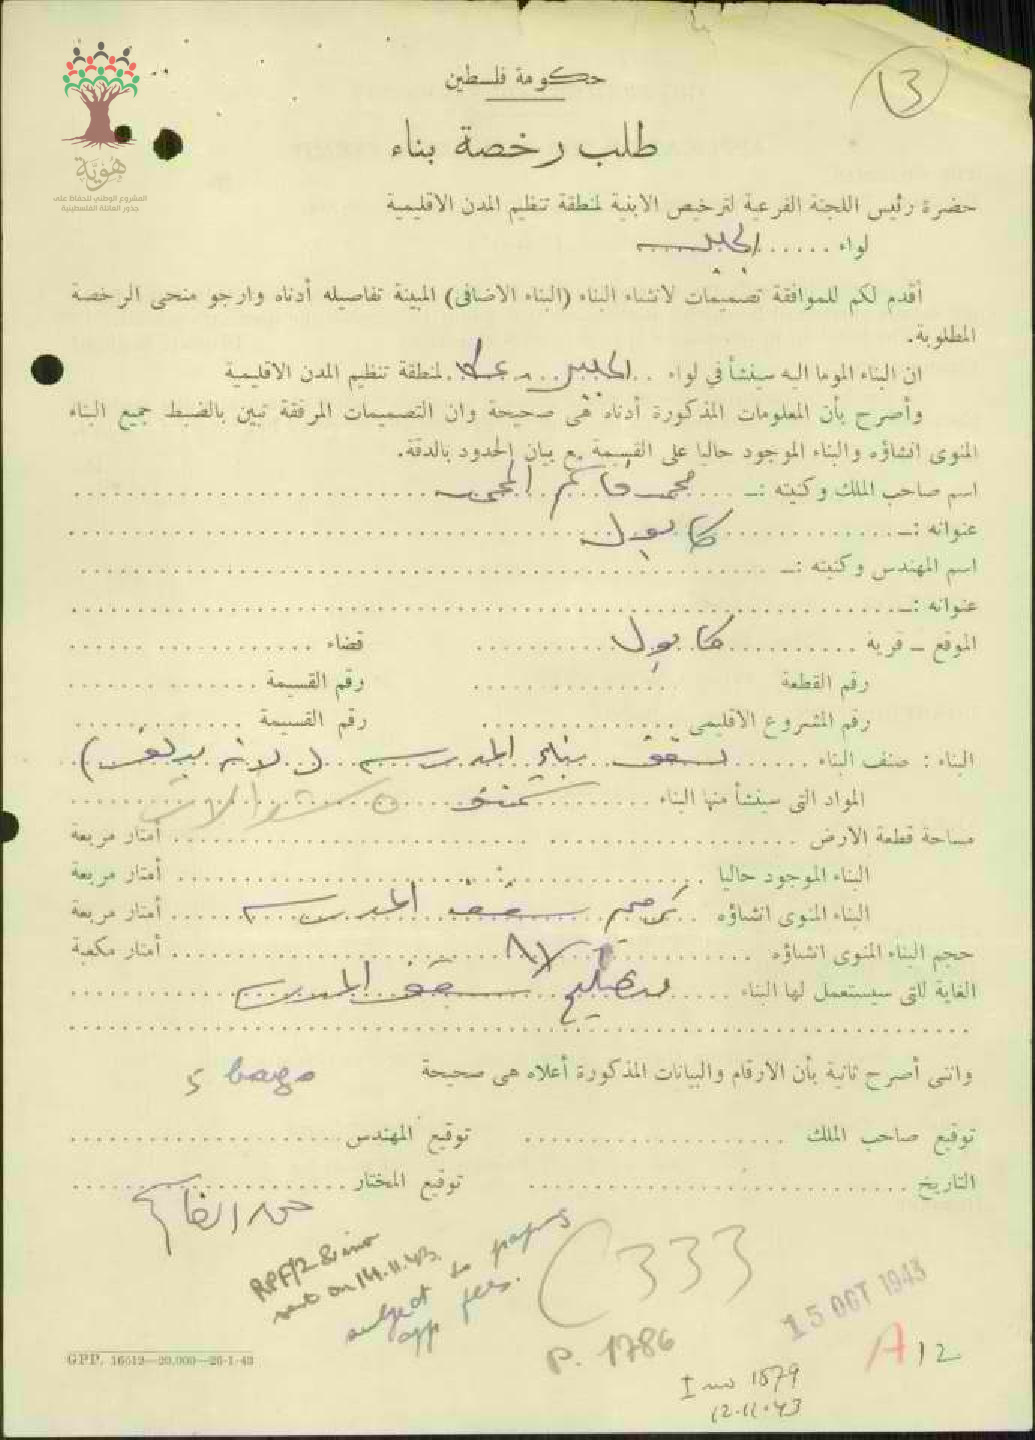 3
هُوِيَّة
المشروع الوطني للحفاظ على
جذور العائلة الفلسطينية
حكومة فلسطين
طلب رخصة بناء
حضرة رئيس اللجنة الفرعية لترخيص الابنية لمنطقة تنظيم المدن الاقليمية
لواء ..... الجليل .....
أقدم لكم للموافقة تصميمات لانشاء البناء (البناء الاضافى) المبينة تفاصيله أدناه وارجو منحى الرخصة
المطلوبة.
ان البناء الموما اليه سينشأ في لواء .. الجليل .. عكا . لمنطقة تنظيم المدن الاقليمية
وأصرح بأن المعلومات المذكورة أدناه هى صحيحة وان التصميمات المرفقة تبين بالضبط جميع البناء
المنوى انشاؤه والبناء الموجود حاليا على القسيمة مع بيان الحدود بالدقة.
اسم صاحب الملك وكنيته :ــ محمد قاسم
عنوانه :ــ كابول
اسم المهندس وكنيته :ــ
عنوانه :ــ
الموقع ــ قرية كابول قضاء
رقم القطعة رقم القسيمة
رقم المشروع الاقليمى رقم القسيمة
البناء : صنف البناء سقف بناء المدرسه ( لانه بدلف )
المواد التى سينشأ منها البناء شمنتو ٥ شوالات
مساحة قطعة الأرض أمتار مربعة
البناء الموجود حاليا أمتار مربعة
البناء المنوى انشاؤه ترميم سقف المدرسه أمتار مربعة
حجم البناء المنوى انشاؤه أمتار مكعبة
الغاية للتى سيستعمل لها البناء تصليح سقف المدرسه
وانى أصرح ثانية بأن الارقام والبيانات المذكورة أعلاه هى صحيحة
5 bags
توقيع صاحب الملك توقيع المهندس
التاريخ توقيع المختار
sent on 14.11.43.
subject to
app fees.
C 333
P. 1786
15 OCT 1943
A12
1879
12.11.43
GPP. 16512—20,000—26-1-43